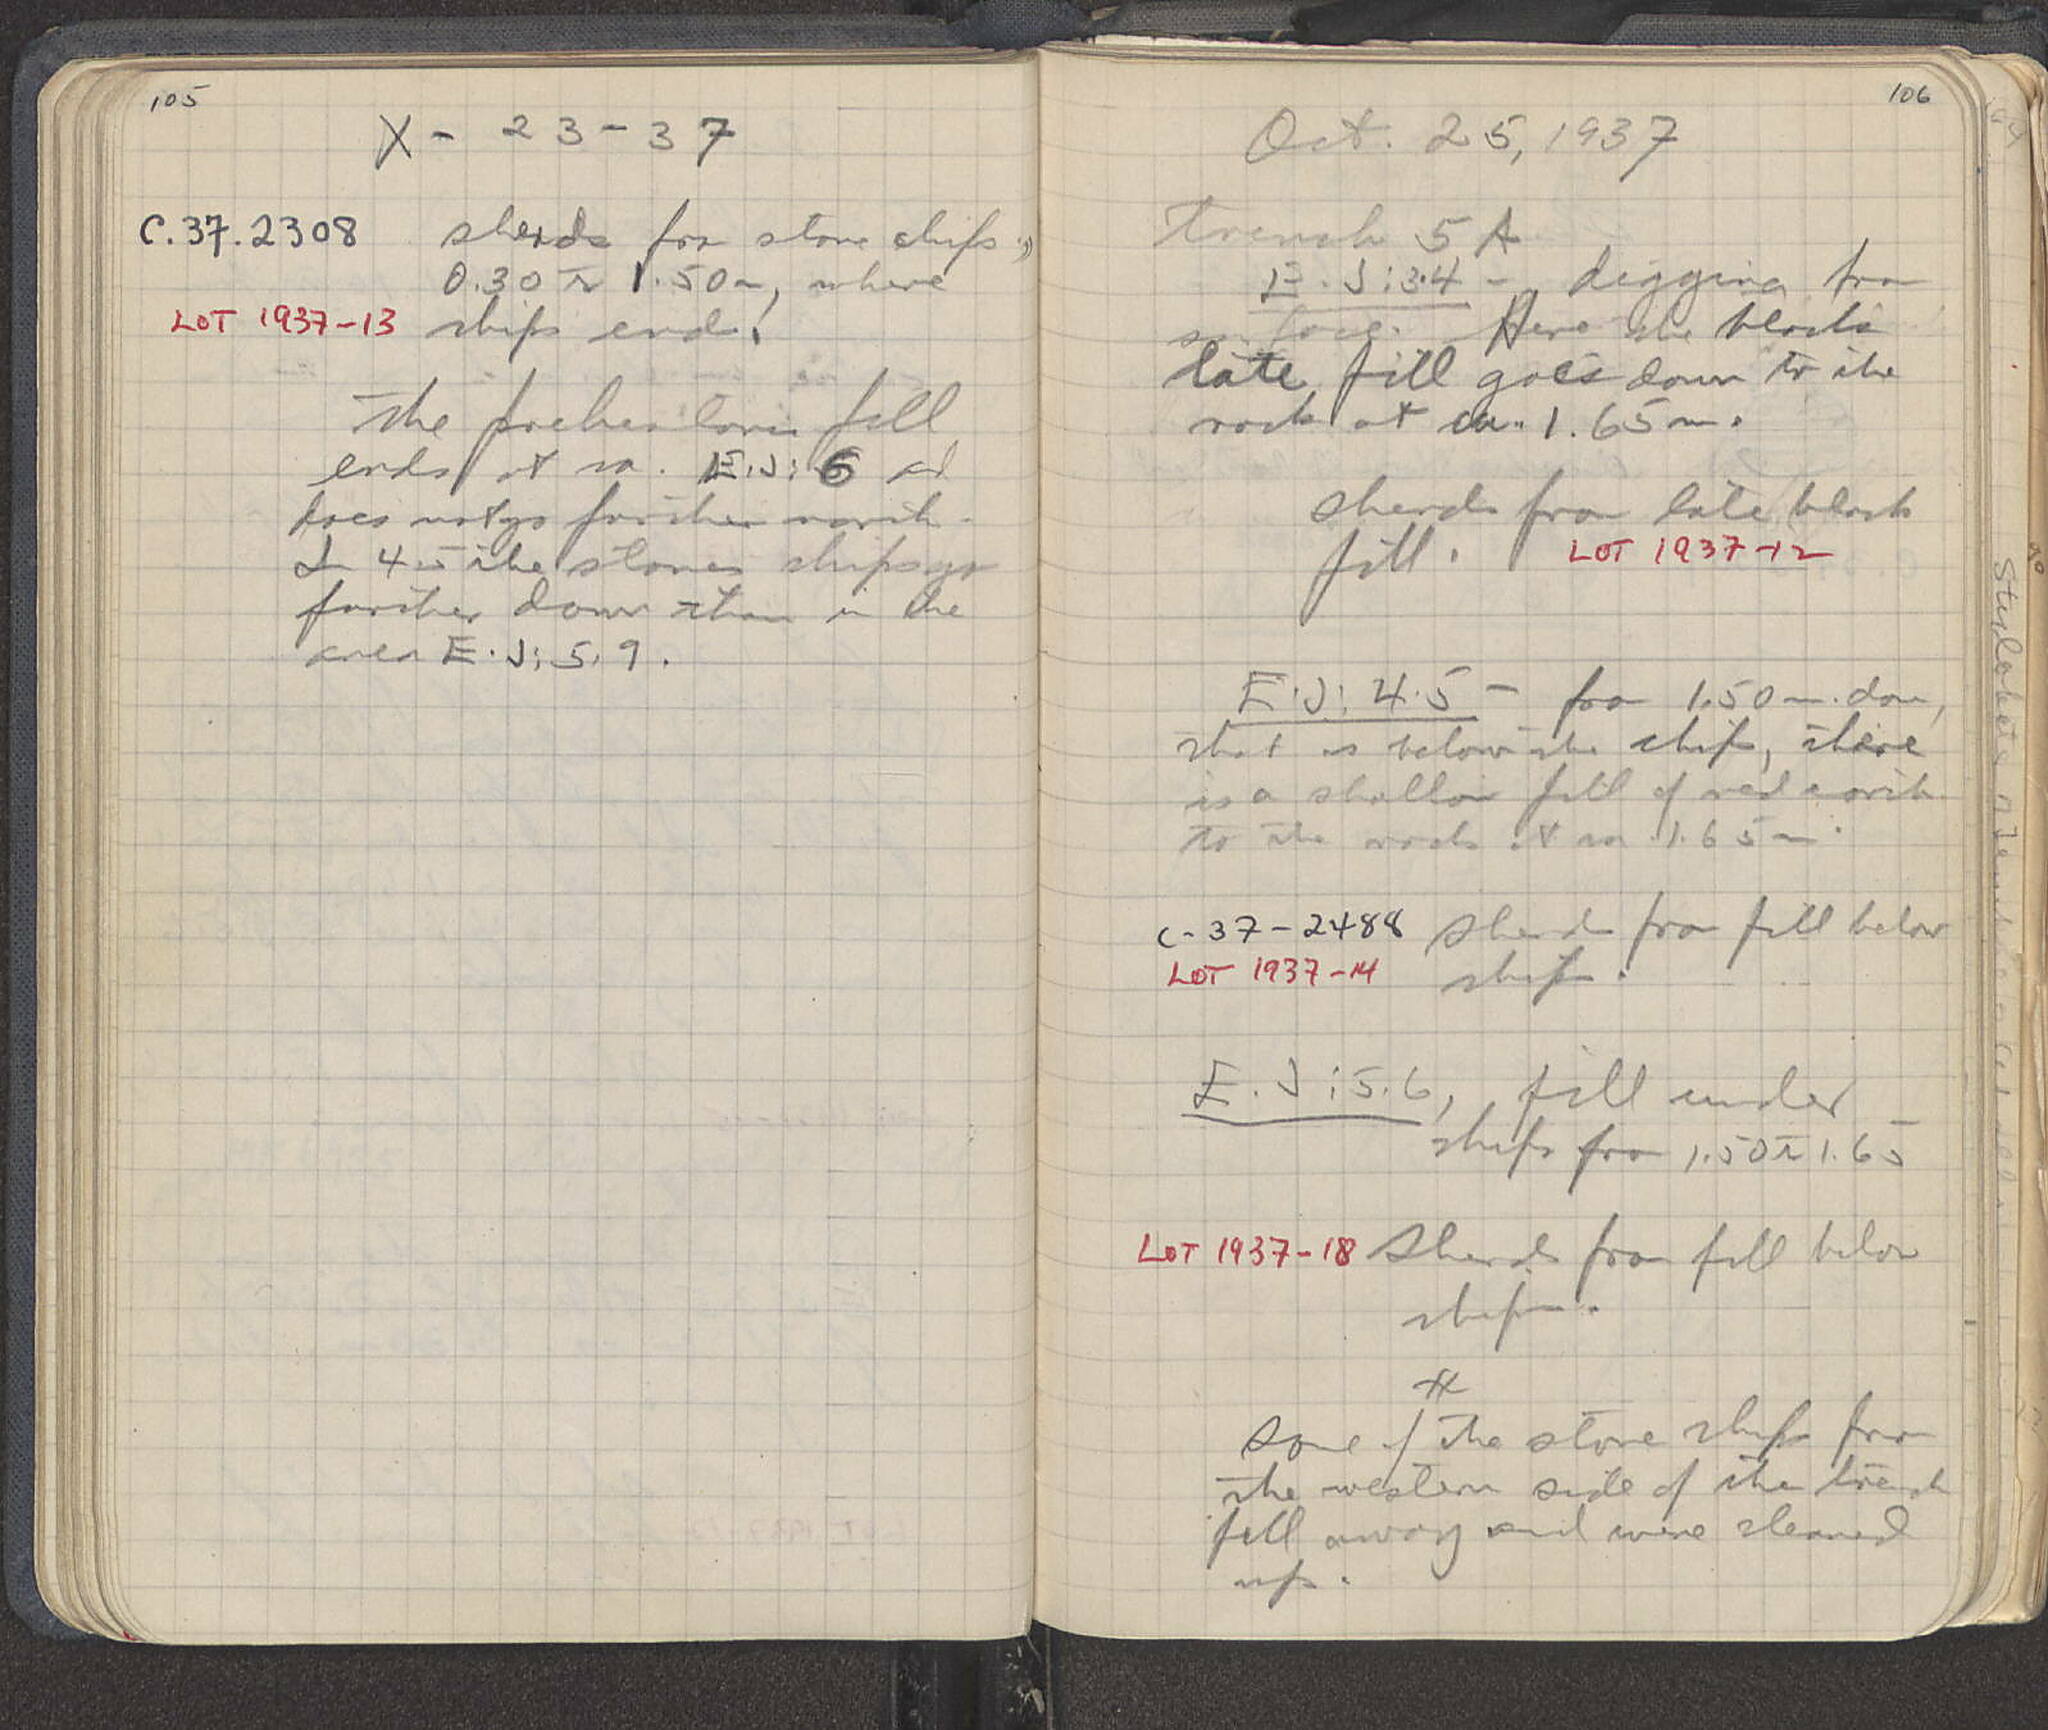 105
X - 23 - 37
C.37.2308 sherds from stone chips,
0.30 to 1.50 m, where
LOT 1937-13 chips end.
The preclassical fill
ends at ca. E.J:6 and
does not go further north.
In 4-5 the stones chips go
further down than in the
area E.J:5.9.
106
Oct. 25, 1937
Trench 5 A
E.J:3.4 - digging from
surface. Here the black
late fill goes down to the
rock at ca. 1.65 m.
sherds from late black
fill. LOT 1937-12
E.J: 4.5 - from 1.50 m. down,
that is below the chips, there
is a shallow fill of red earth
to the rock at ca 1.65 m.
C-37-2488 Sherds from fill below
LOT 1937-14 chips.
E.J:5.6, fill under
chips from 1.50 to 1.65
LOT 1937-18 Sherds from fill below
chips.
Some of the stone chips from
the western side of the trench
fell away and were cleaned
up.